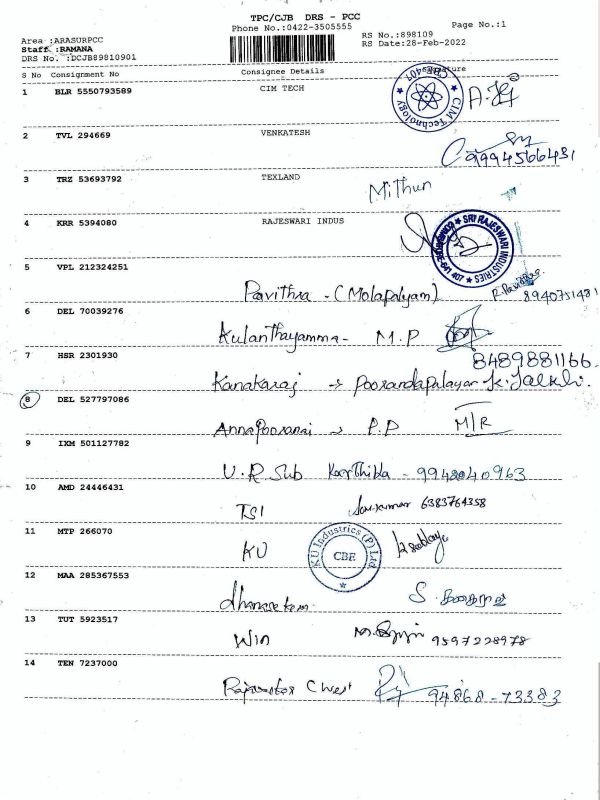 TPC/CJB DRS - PCC
Phone No.:0422-3505555
Page No.:1
Area :ARASURPCC
RS No.:898109
Staff :RAMANA
RS Date:28-Feb-2022
DRS No. :DCJB89810901
S No Consignment No Consignee Details Signature
1 BLR 5550793589 CIM TECH
CIM Technology
2 TVL 294669 VENKATESH
9994566431
3 TRZ 53693792 TEXLAND
Mithun
4 KRR 5394080 RAJESWARI INDUS
SRI RAJESWARI INDUSTRIES
5 VPL 212324251
Pavithra - (Molapalyam) 8940751481
6 DEL 70039276
Kulanthayamma - M.P
7 HSR 2301930 8489881166
Kanakaraj → Poorandapalayam
8 DEL 527797086
Annapooranai → P.P M/R
9 IXM 501127782
U.R Sub Karthika - 9948040963
10 AMD 24446431
TSI 6383764358
11 MTP 266070
KU
KU Industries (P) Ltd.
CBE
12 MAA 285367553
13 TUT 5923517
Win 9597228978
14 TEN 7237000
94868-73383